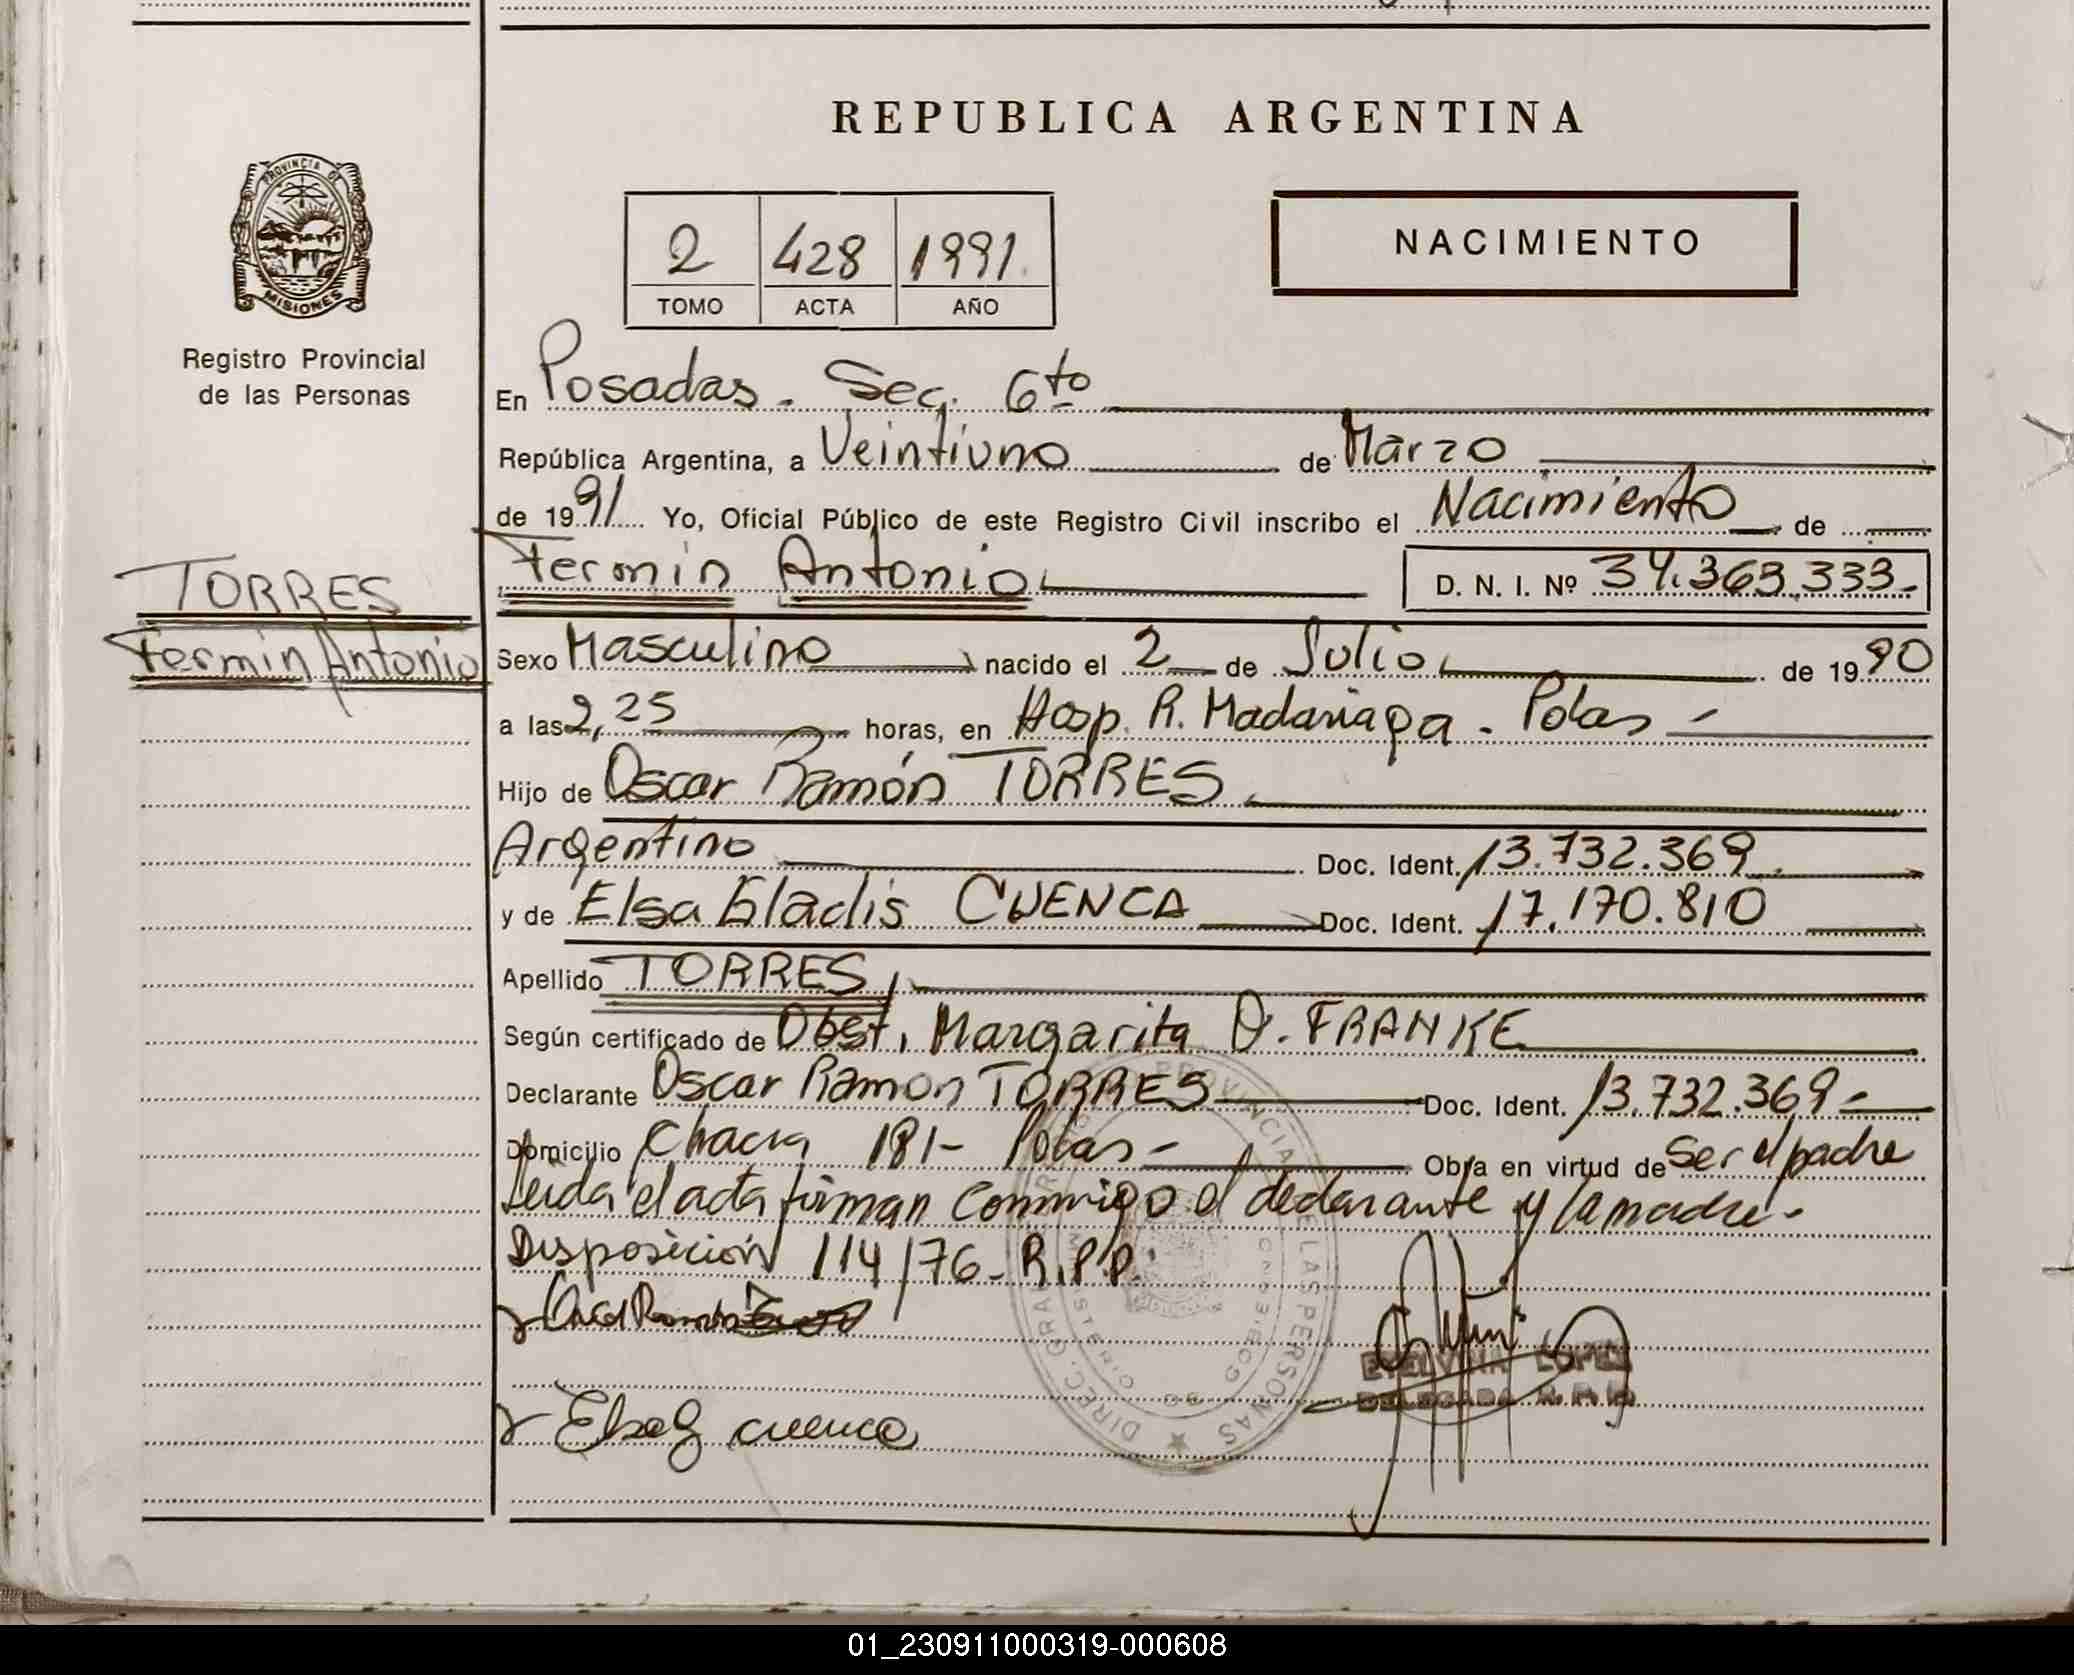 REPUBLICA ARGENTINA
PROVINCIA DE
MISIONES
Registro Provincial
de las Personas
2 428 1991.
TOMO ACTA AÑO
NACIMIENTO
En Posadas. Sec. 6to
República Argentina, a Veintiuno de Marzo
de 1991 Yo, Oficial Público de este Registro Civil inscribo el Nacimiento de
Fermin Antonio D. N. I. Nº 34.363.333.-
TORRES
Fermin Antonio
Sexo Masculino nacido el 2 de Julio de 1990
a las 2,25 horas, en Hosp. R. Madariaga - Pdas -
Hijo de Oscar Ramón TORRES
Argentino Doc. Ident. 13.732.369.
y de Elsa Gladis CUENCA Doc. Ident. 17.170.810
Apellido TORRES,
Según certificado de Obst. Margarita D. FRANKE
Declarante Oscar Ramon TORRES Doc. Ident. 13.732.369-
Domicilio Chacra 181- Pdas - Obra en virtud de Ser el padre
Leida el acta firman conmigo el declarante y la madre-
Disposición 114/76- R.P.P.
Elsa G cuenca
ETELVINA LOPEZ
DELEGADA R.P.P.
DIREC. GRAL. PROVINCIAL DE LAS PERSONAS
01_230911000319-000608